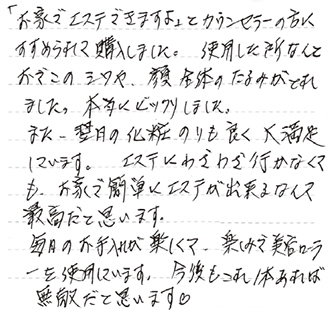 「お家でエステできますよ」とカウンセラーの方に
すすめられて購入しました。使用した所なんと
おでこのシワや、顔全体のたるみがとれ
ました。本当にビックリしました。
また、翌日の化粧のりも良く大満足
しています。エステにわざわざ行かなくて
も、お家で簡単にエステが出来るなんて
最高だと思います。
毎日のお手入れが楽しくて、楽しみで美容ローラ
ーを使用しています。今後もこれ1本あれば
無敵だと思います。